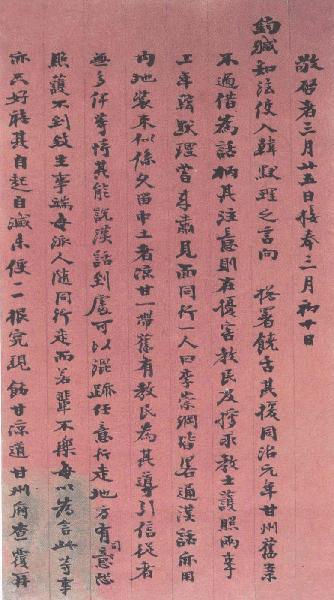 敬啟者三月廿五日接奉三月初十日
鈞緘知法使入韓默理之言向 總署饒舌其援同治元年甘州舊案
不過借為話柄其注意則在優容教民及求教士護照兩事
上年韓默理曾來肅見面同行一人曰李崇綱皆畧通漢話亦用
內地裝束似係久留中土者涼甘一帶舊有教民為其導引信從者
無多等情其能說漢話到處可以混跡任意行走地方有司意恐
照護不到致生事端每派人隨同行走而若輩不樂每以為言此等事
亦只好聽其自起自滅未便一一根究現飭甘涼道甘州府查覆再